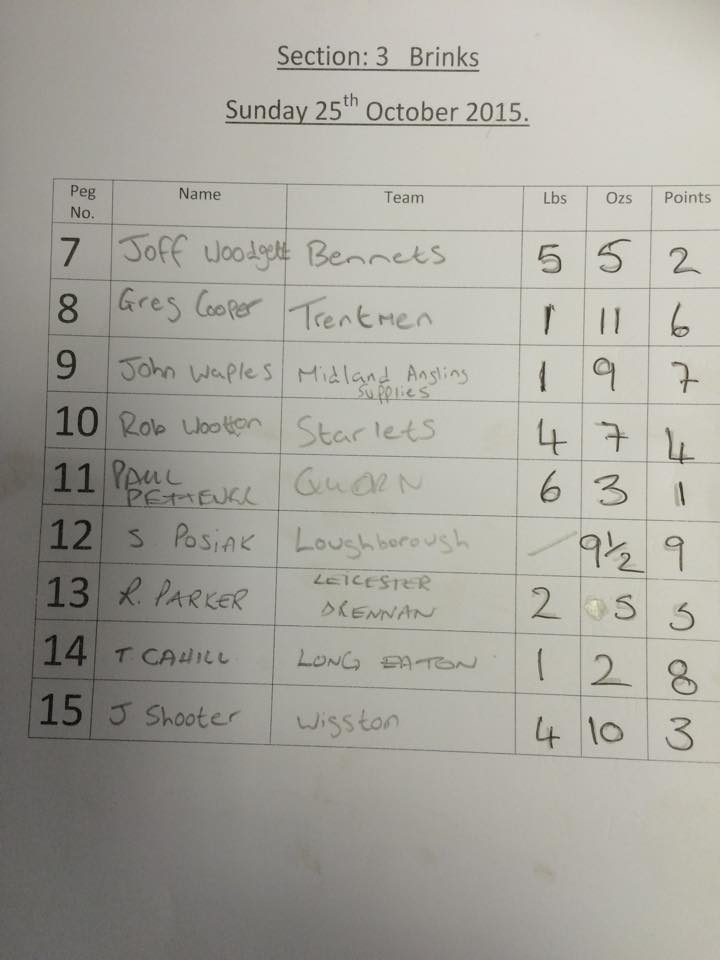 Section: 3 Brinks
Sunday 25th October 2015.
Peg No. Name Team Lbs Ozs Points
7 Joff Woodgett Bennets 5 5 2
8 Greg Cooper Trentmen 1 11 6
9 John Waples Midland Angling Supplies 1 9 7
10 Rob Wootton Starlets 4 7 4
11 PAUL Quorn 6 3 1
12 S POSIAK Loughborough / 9½ 9
13 R. PARKER LEICESTER DRENNAN 2 5 5
14 T. CAHILL LONG EATON 1 2 8
15 J Shooter Wigston 4 10 3